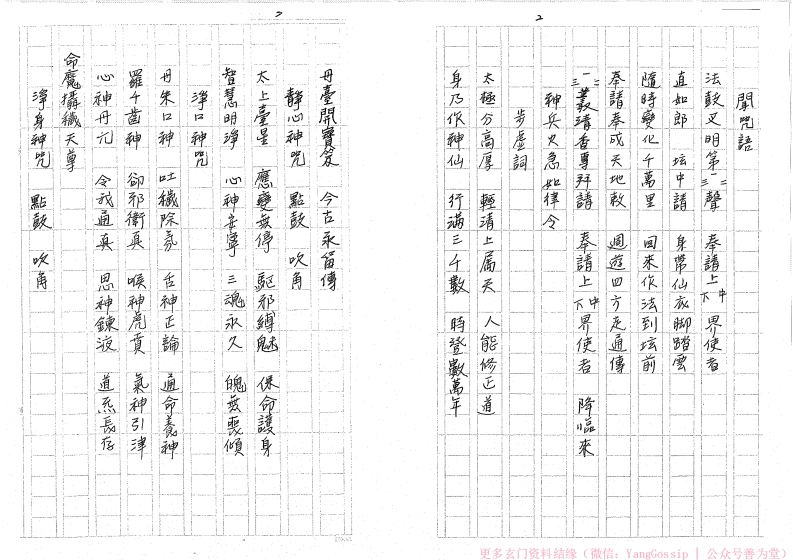 2
聞咒語
法鼓又明第一二三聲 奉請上中下界使者
直如郎 坛中請 身帶仙衣脚踏雲
隨時變化千萬里 回來作法到坛前
奉請奉成天地敕 週遊四方走通傳
一二三義清香專拜請 奉請上中下界使者 降臨來
神兵火急如律令
步虛詞
太極分高厚 輕清上属天 人能修正道
身乃作神仙 行滿三千數 時登數萬年
3
丹臺開寶笈 今古永留傳
靜心神咒 點鼓 吹角
太上臺星 應變無停 驅邪縛魅 保命護身
智慧明淨 心神安寧 三魂永久 魄無喪傾
淨口神咒
丹朱口神 吐穢除氛 舌神正論 通命養神
羅千齒神 卻邪衛真 喉神虎賁 氣神引津
心神丹元 令我通真 思神鍊液 道炁長存
命魔攝穢天尊
淨身神咒 點鼓 吹角
更多玄门资料结缘（微信：YangGossip | 公众号善为堂）